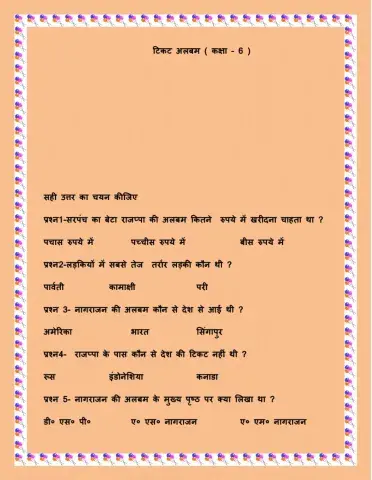 टिकट अलबम ( कक्षा - 6 )
सही उत्तर का चयन कीजिए
प्रश्न1-सरपंच का बेटा राजप्पा की अलबम कितने रुपये में खरीदना चाहता था ?
पचास रुपये में पच्चीस रुपये में बीस रुपये में
प्रश्न2-लड़कियों में सबसे तेज तर्रार लड़की कौन थी ?
पार्वती कामाक्षी परी
प्रश्न 3- नागराजन की अलबम कौन से देश से आई थी ?
अमेरिका भारत सिंगापुर
प्रश्न4- राजप्पा के पास कौन से देश की टिकट नहीं थी ?
रूस इंडोनेशिया कनाडा
प्रश्न 5- नागराजन की अलबम के मुख्य पृष्ठ पर क्या लिखा था ?
डी० एस० पी० ए० एस० नागराजन ए० एम० नागराजन